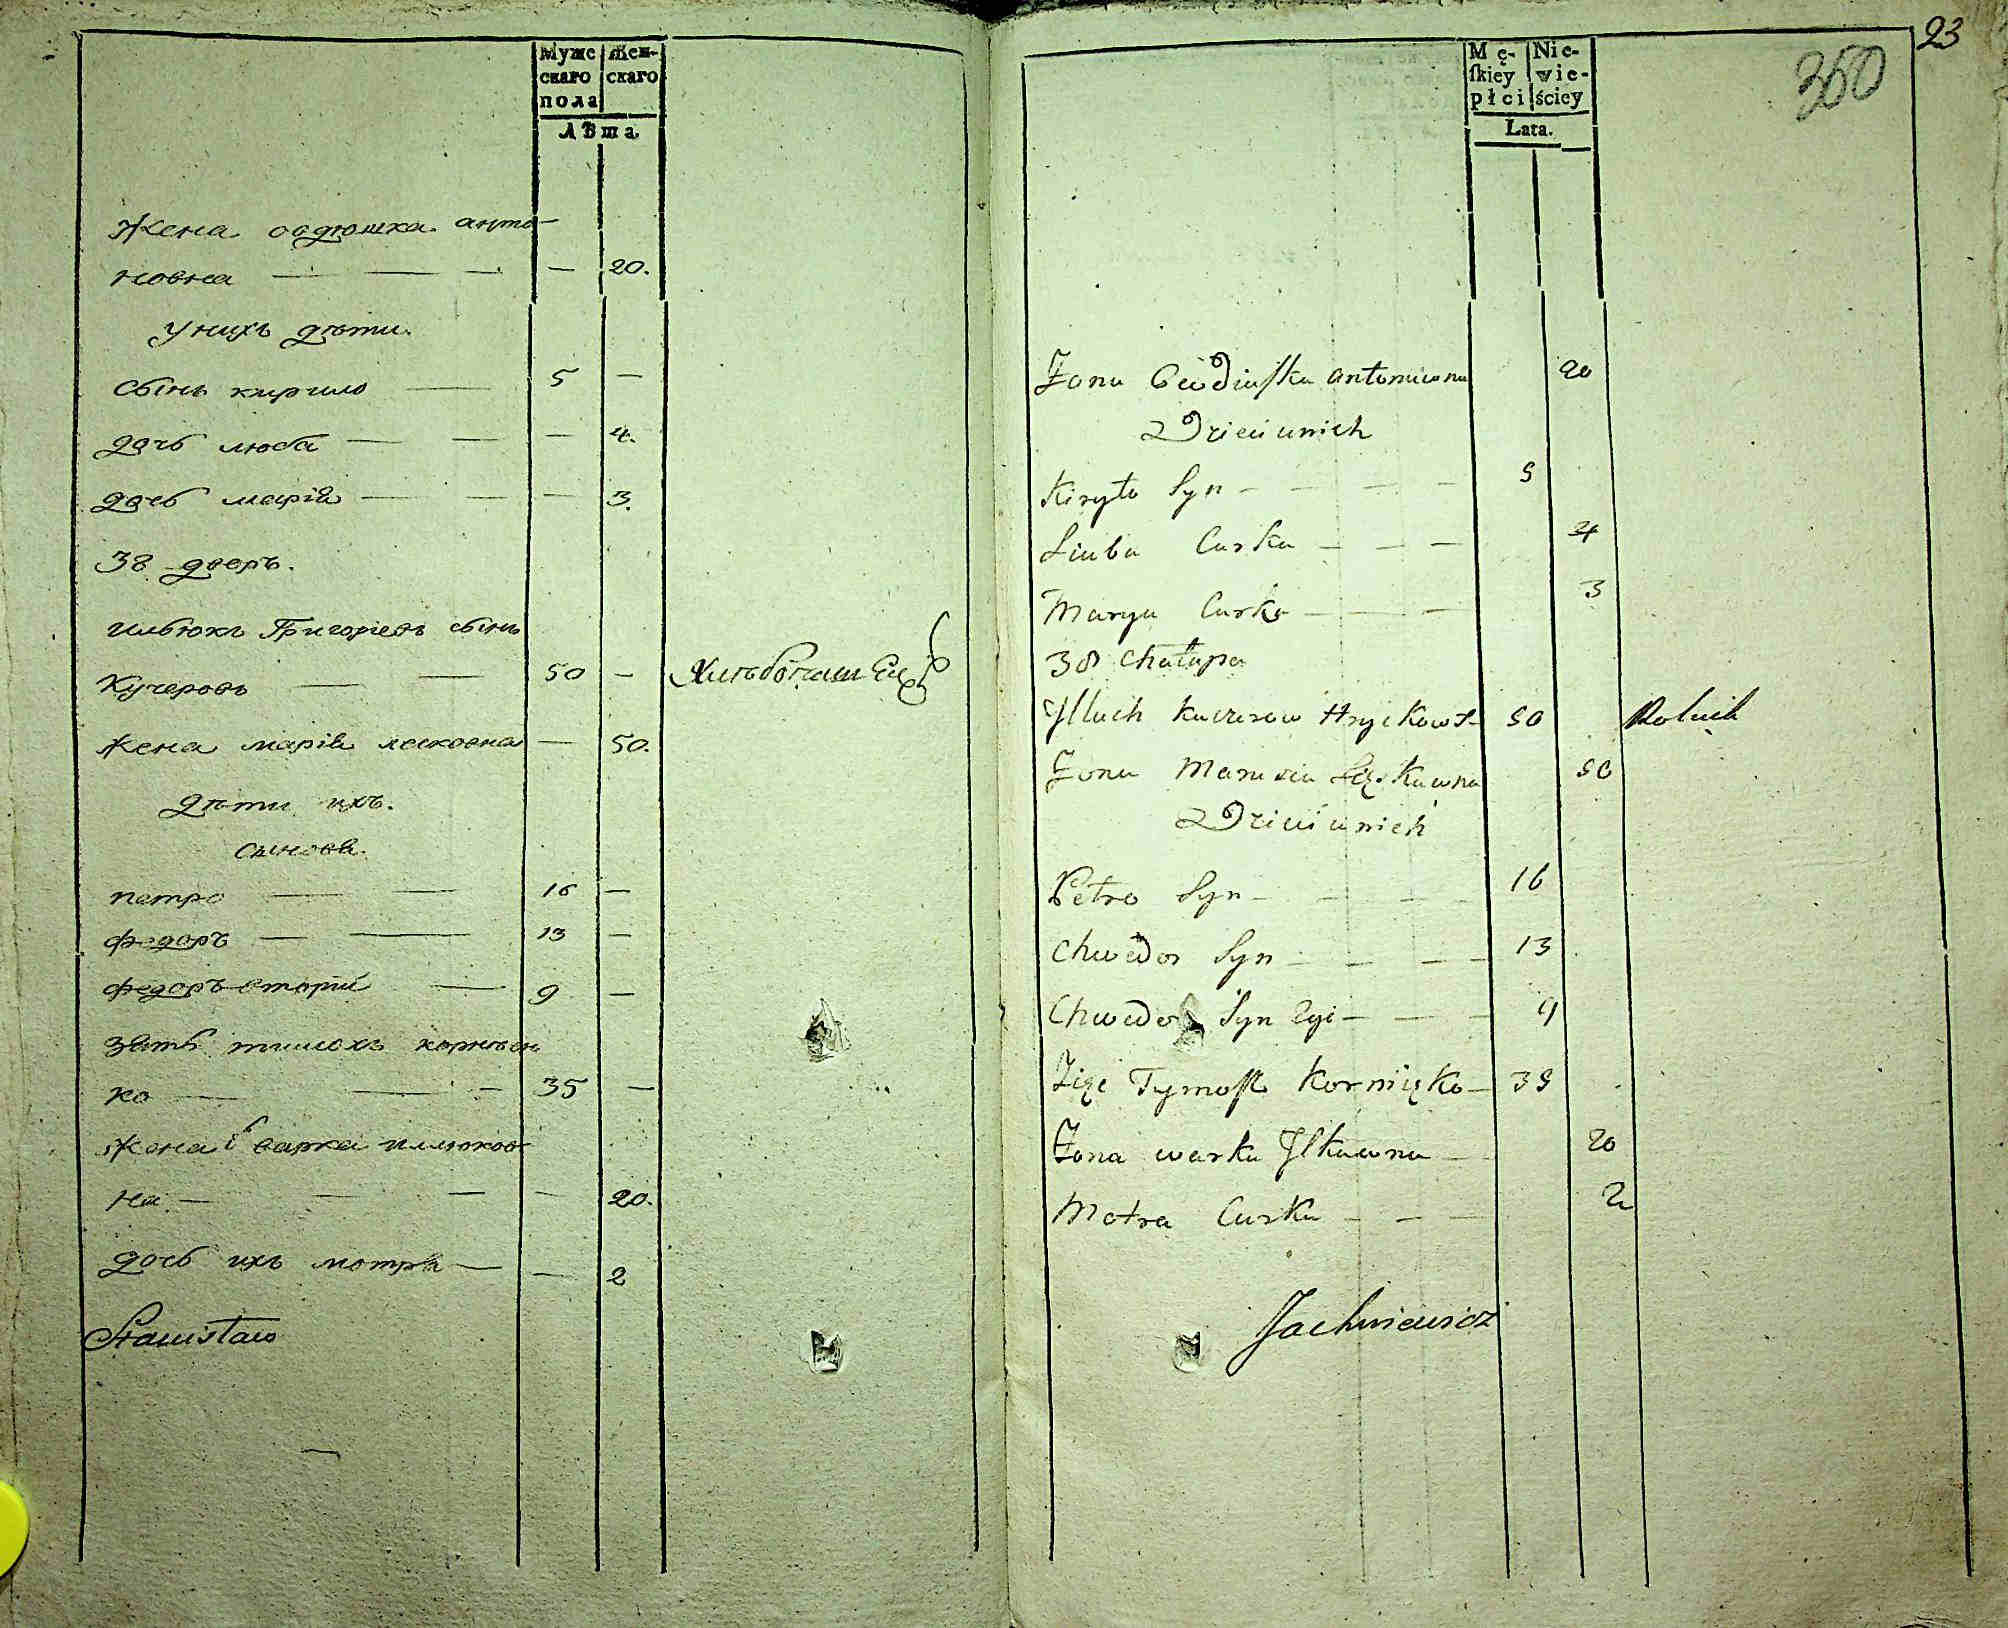 Муже
скаго
пола
Жен-
скаго
Лѣта
Жена овдюшка анто-
новна — — — — 20.
у нихъ дѣти.
сынъ кирило — 5 —
дочь люба — — — 4.
дочь марія — — — 3.
38 дворъ.
ильюхъ Григорьевъ сынъ
Кучеровъ — — 50 —
Жена марія лесковна — 50.
дѣти ихъ.
сыновя.
петро — — 16 —
федоръ — — 13 —
федоръ вторій — 9 —
зять тимохъ корнѣен
ко — — 35 —
Жена варка иллюхов
на — — — — 20.
дочь ихъ мотря — — 2
Stanisław
23
350
Mę-
ſkiey
płci
Nie-
wie-
ściey
Lata.
Żona Owdiuszka Antonowna 20
Dzieci u nich
Kiryło Syn — — — — 5
Liuba Curka — — — 4
Marya Curka — — 3
38 Chałupa
Illuch Kuczerow Hryckow S. 50 Rolnik
Żona Marusia Leskowna 50
Dzieci u nich
Petro Syn — — — — 16
Chwedor Syn — — — — 13
Chwedor Syn 2gi — — — 9
Zięć Tymosz Kornięko — 35
Żona warka Ilkowna — 20
Motra Curka — — — 2
Jachniewicz